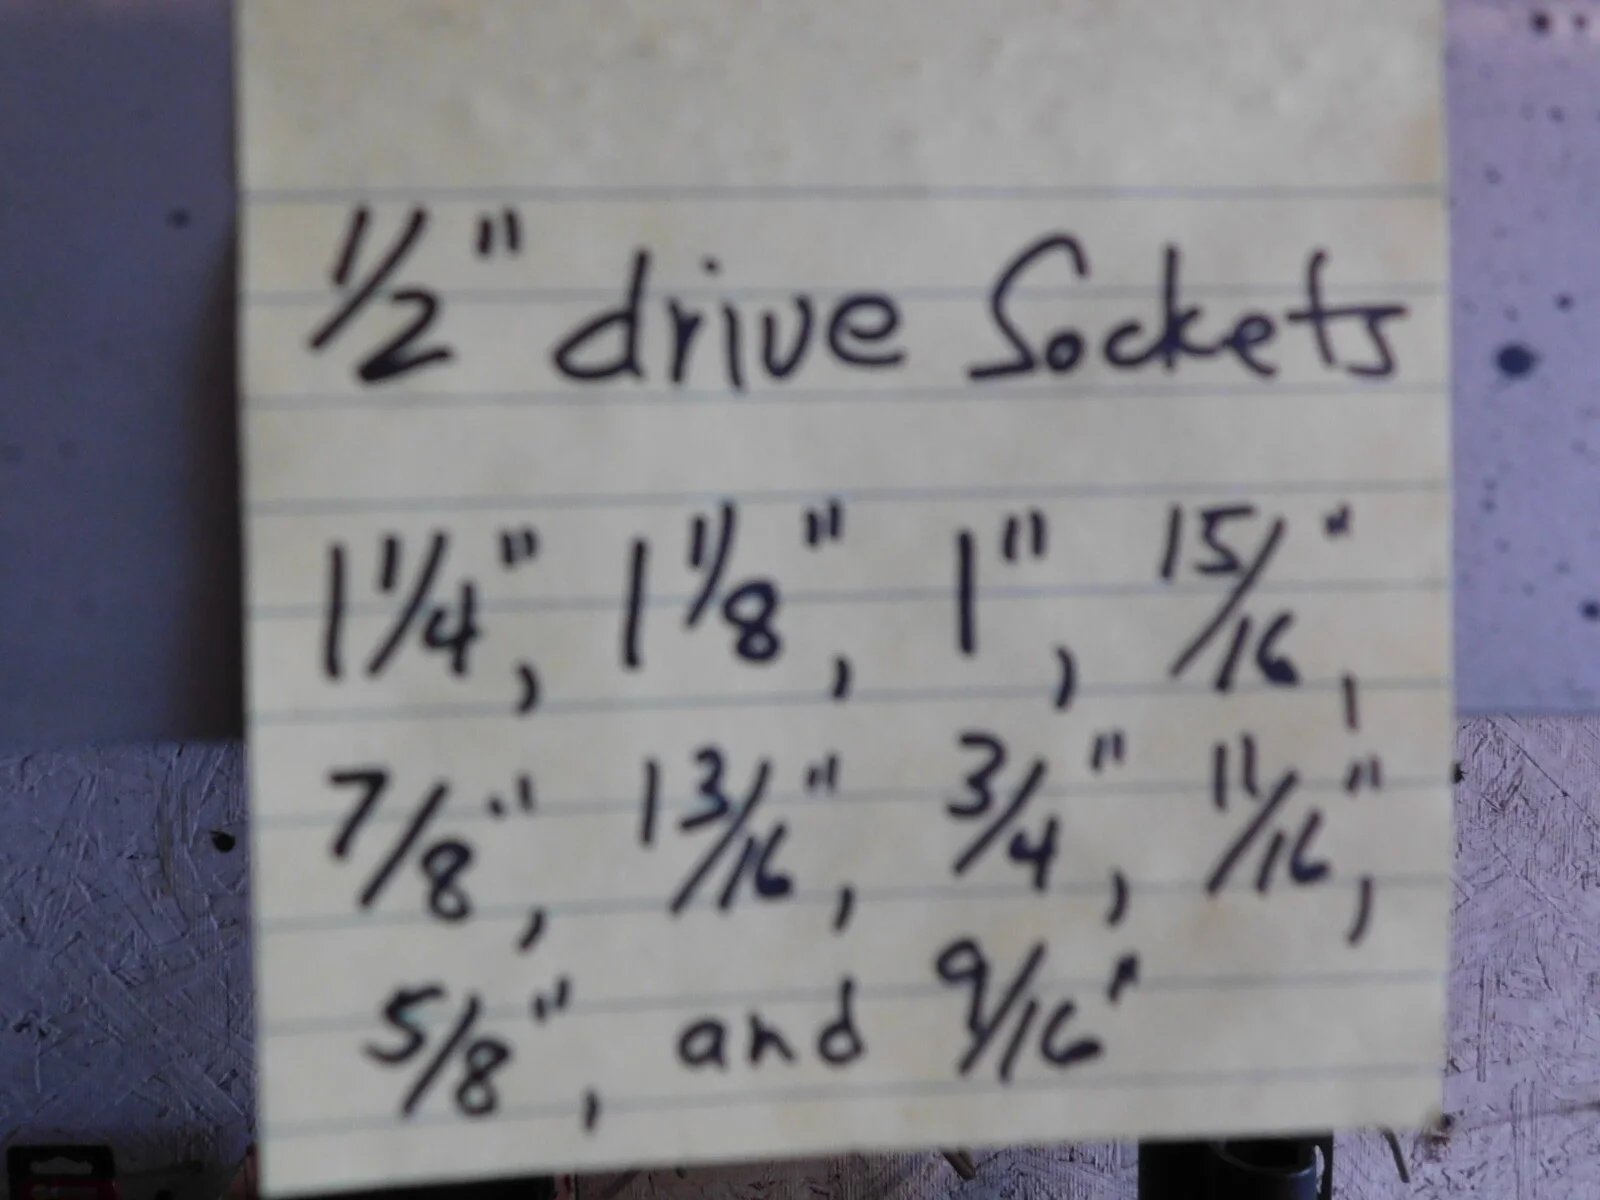 1/2" drive Sockets
1 1/4", 1 1/8", 1", 15/16",
7/8", 13/16", 3/4", 11/16",
5/8", and 9/16"